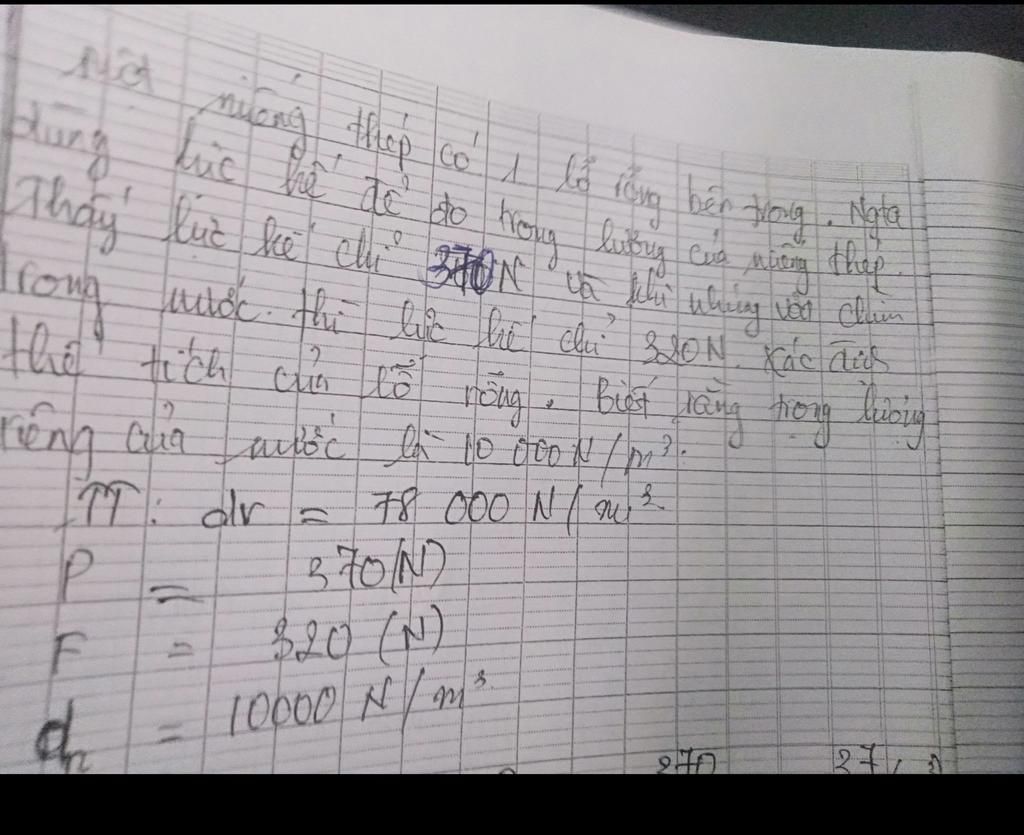 Một miếng thép có 1 lỗ rỗng bên trong. Ngta
dùng lực kế để đo trọng lượng của miếng thép.
Thấy lực kế chỉ 370N và khi nhúng vào chìm
trong nước. thì lực kế chỉ 320N. Xác định
thể tích của lỗ rỗng. Biết rằng trọng lượng
riêng của nước là 10 000 N/m³.
TT: dv = 78 000 N/m³
P = 370(N)
F = 320 (N)
dn = 10000 N/m³
370 37